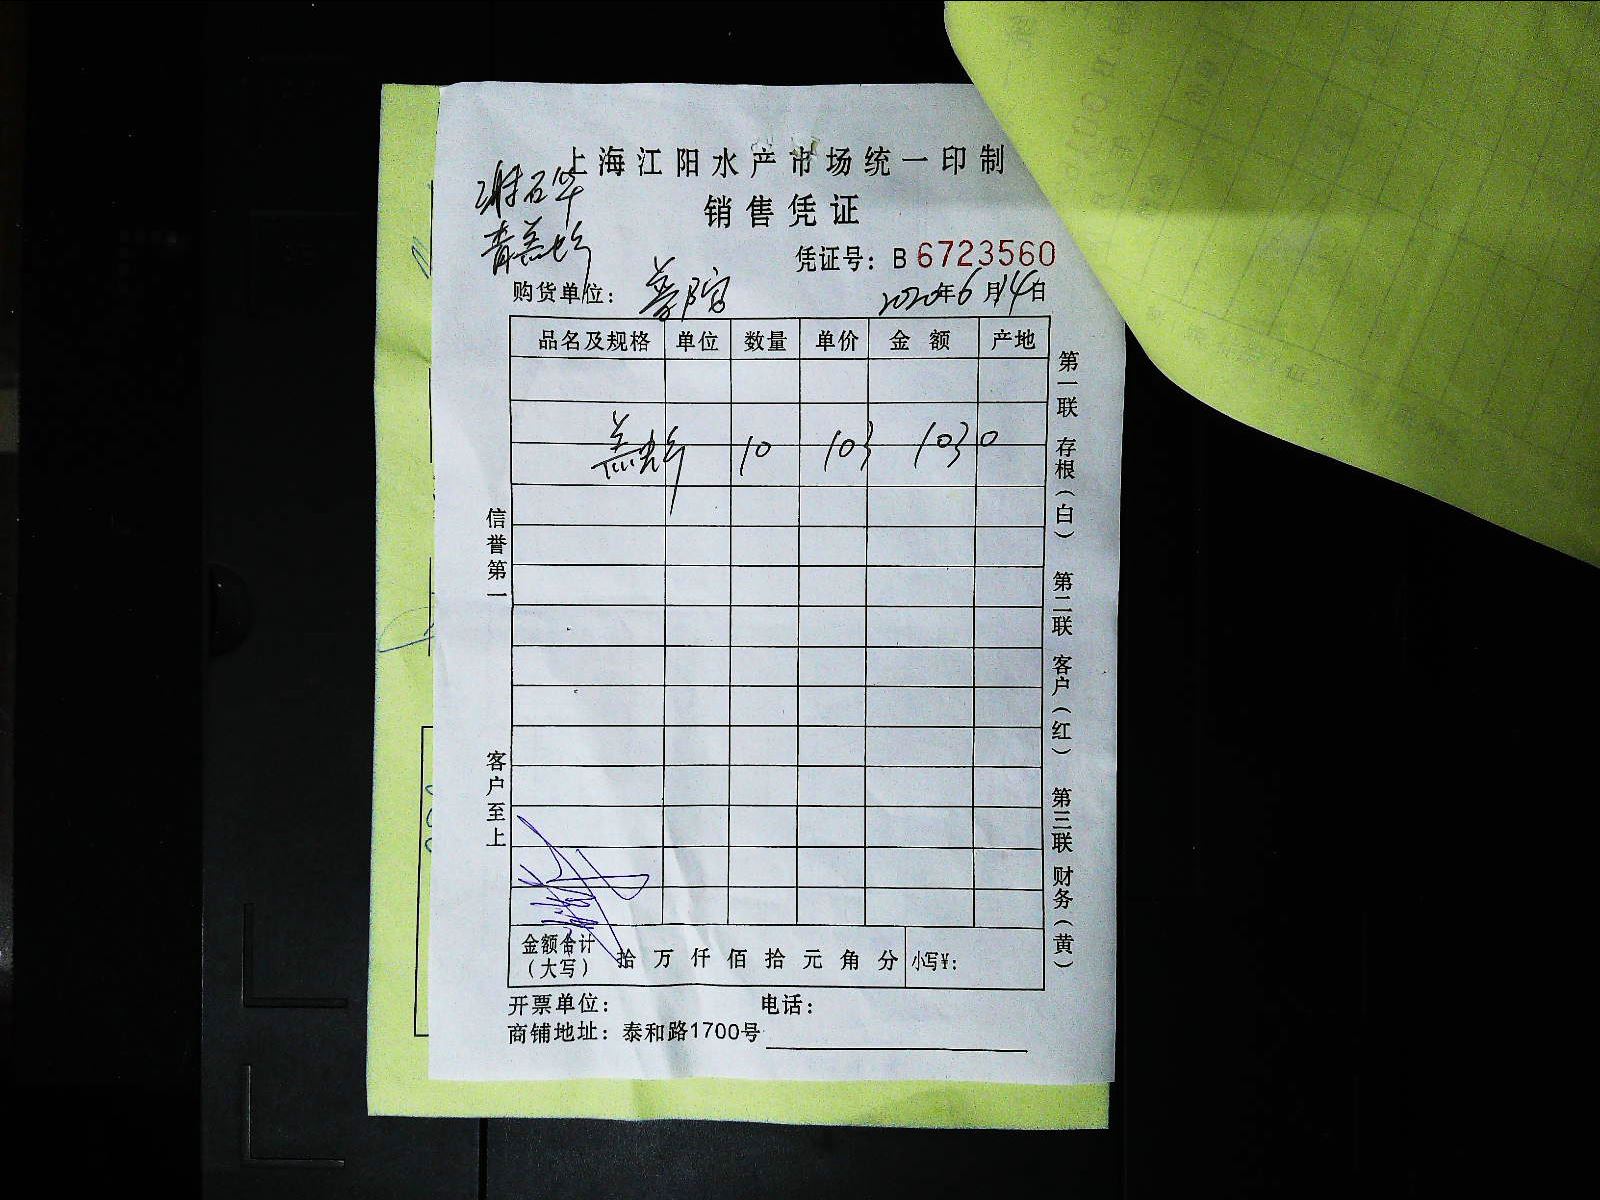 上海江阳水产市场统一印制
销售凭证
谢石华
青羔虾
凭证号：B 6723560
购货单位：
2020年6月14日
品名及规格 单位 数量 单价 金额 产地
羔虾 10 103 1030
信誉第一
客户至上
第一联 存根（白） 第二联 客户（红） 第三联 财务（黄）
金额合计（大写） 拾 万 仟 佰 拾 元 角 分 小写¥：
开票单位： 电话：
商铺地址：泰和路1700号